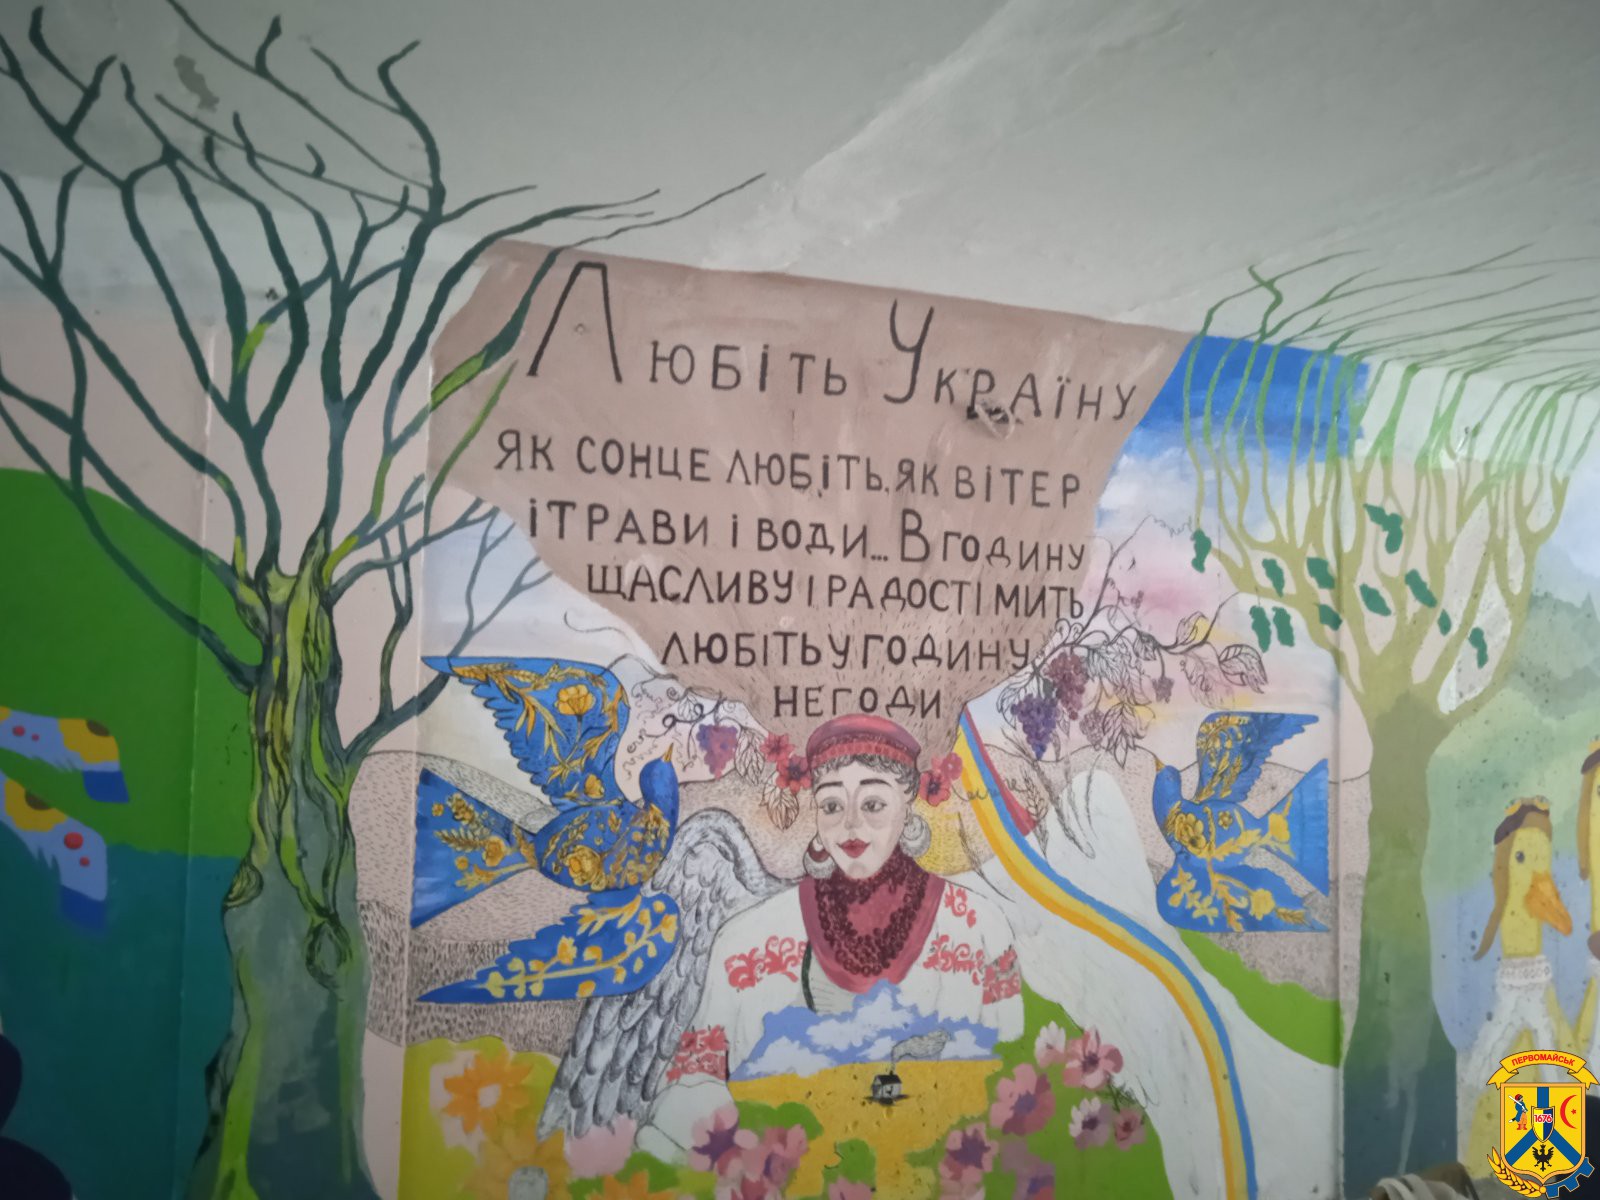 Любіть Україну
як сонце любіть, як вітер
і трави і води... В годину
щасливу і радості мить
любіть у годину
негоди
ПЕРВОМАЙСЬК
1676